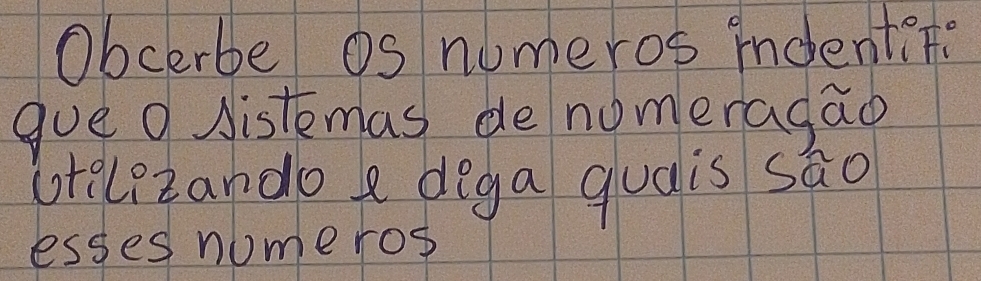 Obcerbe os numeros indentifi
que o sistemas de numeragão
utilizando e diga quais são
esses numeros